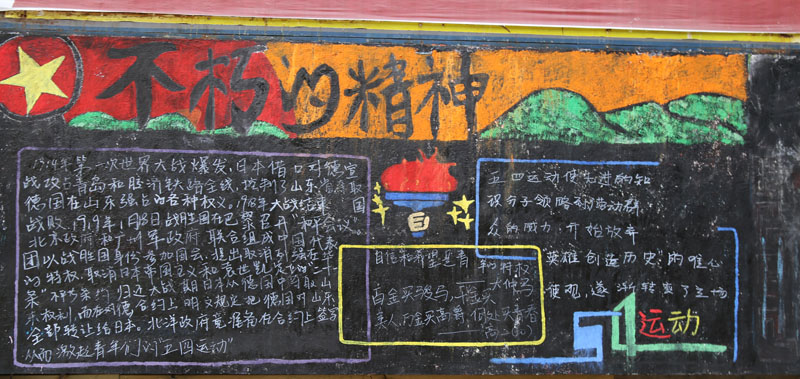 不朽的精神
1914年第一次世界大战爆发,日本借口对德宣
战攻占青岛和胶济铁路全线,控制了山东 夺取
德国在山东强占的各种权义。1918年大战结束, 国
战败。1919年1月18日战胜国在巴黎召开"和平会议。
北京政府和广州军政府联合组成中国代表
团以战胜国身份参加国会,提出取消列强在华
的特权,取消日本帝国主义和袁世凯 定的"二十一
条" 条约,归还大战期日本从德国 夺取山
东权利,而 对德合约上明文规定把德国对山东
全部转让给日本。北洋政府竟准备在合约上签字
从而激起青年们的"五四运动"
自信和希望是青年的特权
——大仲马
百金买骏马,千金买
美人,万金买高爵,何处买青春
五四运动使先进的知
识分子领略到劳动群
众的威力,开始放弃
英雄创造历史"的唯心
史观,逐渐转变了立场
54运动